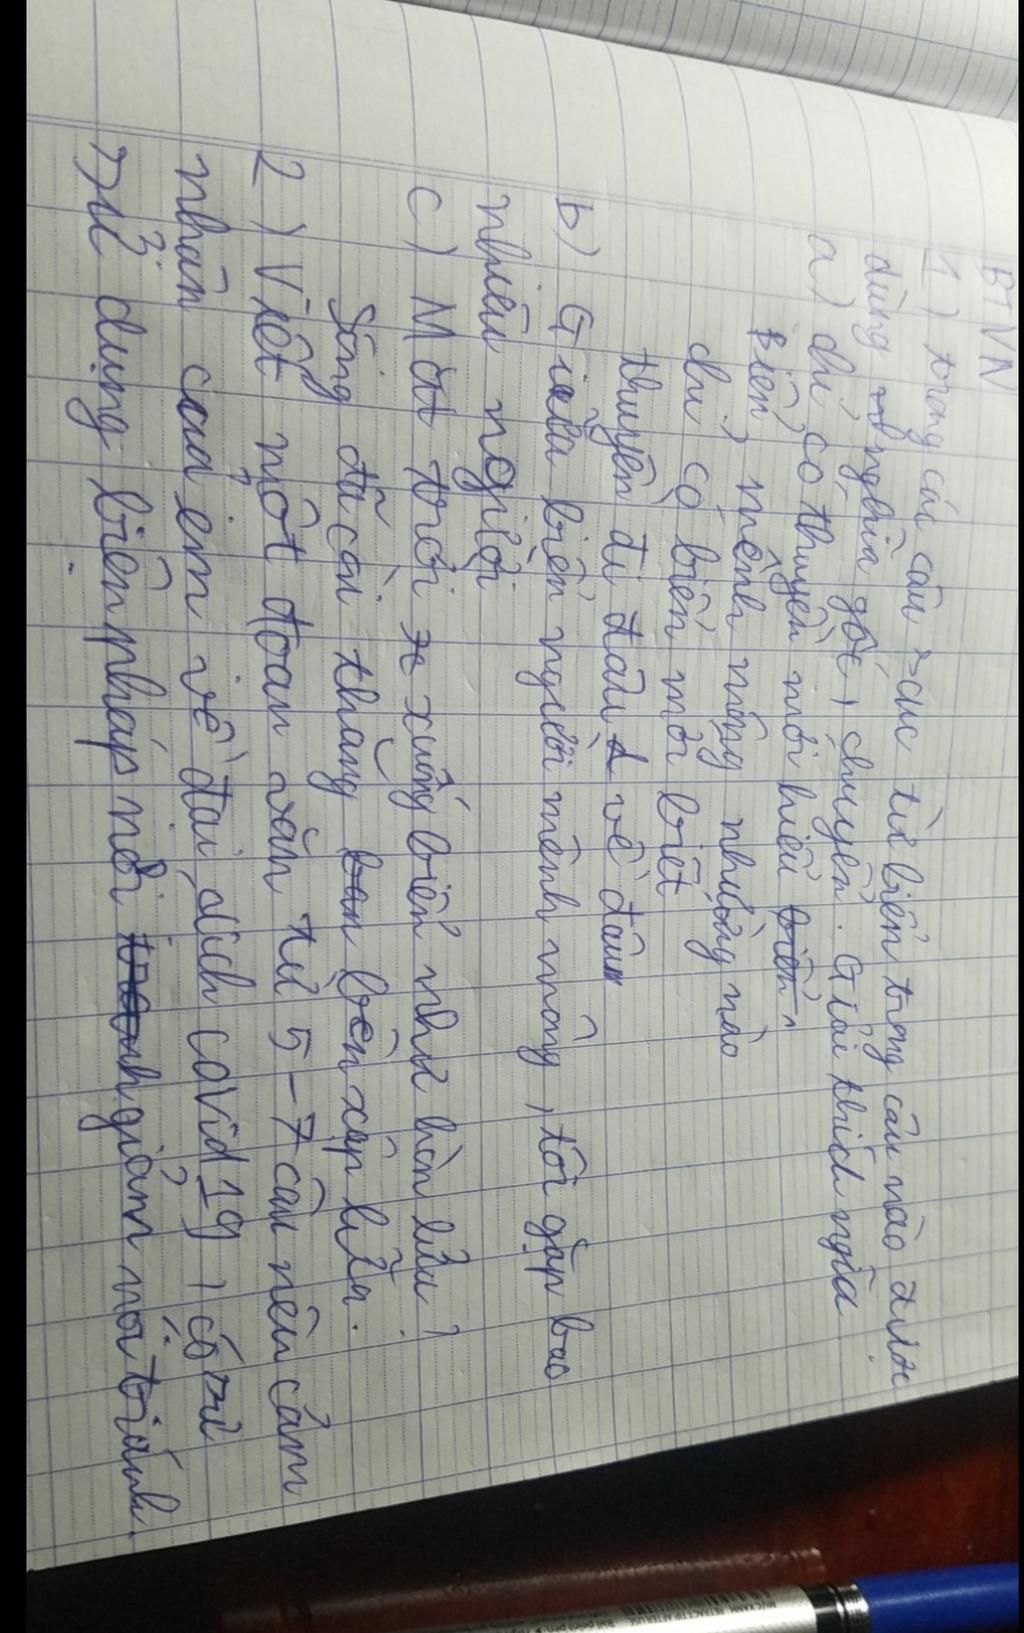 BTVN
1) trong các câu sau từ biển trong câu nào được
dùng nghĩa gốc, chuyển. Giải thích nghĩa
a) chỉ có thuyền mới hiểu
Biển mênh mông nhường nào
chỉ có biển mới biết
thuyền đi đâu về đâu
b) Giữa biển người mênh mông, tôi gặp bao
nhiêu người
c) Mặt trời xuống biển như hòn lửa
Sóng đã cài then bên xập lửa.
2) Viết một đoạn văn từ 5-7 câu nêu cảm
nhận của em về đại dịch covid 19, có sử
sử dụng biện pháp nói giảm nói tránh.